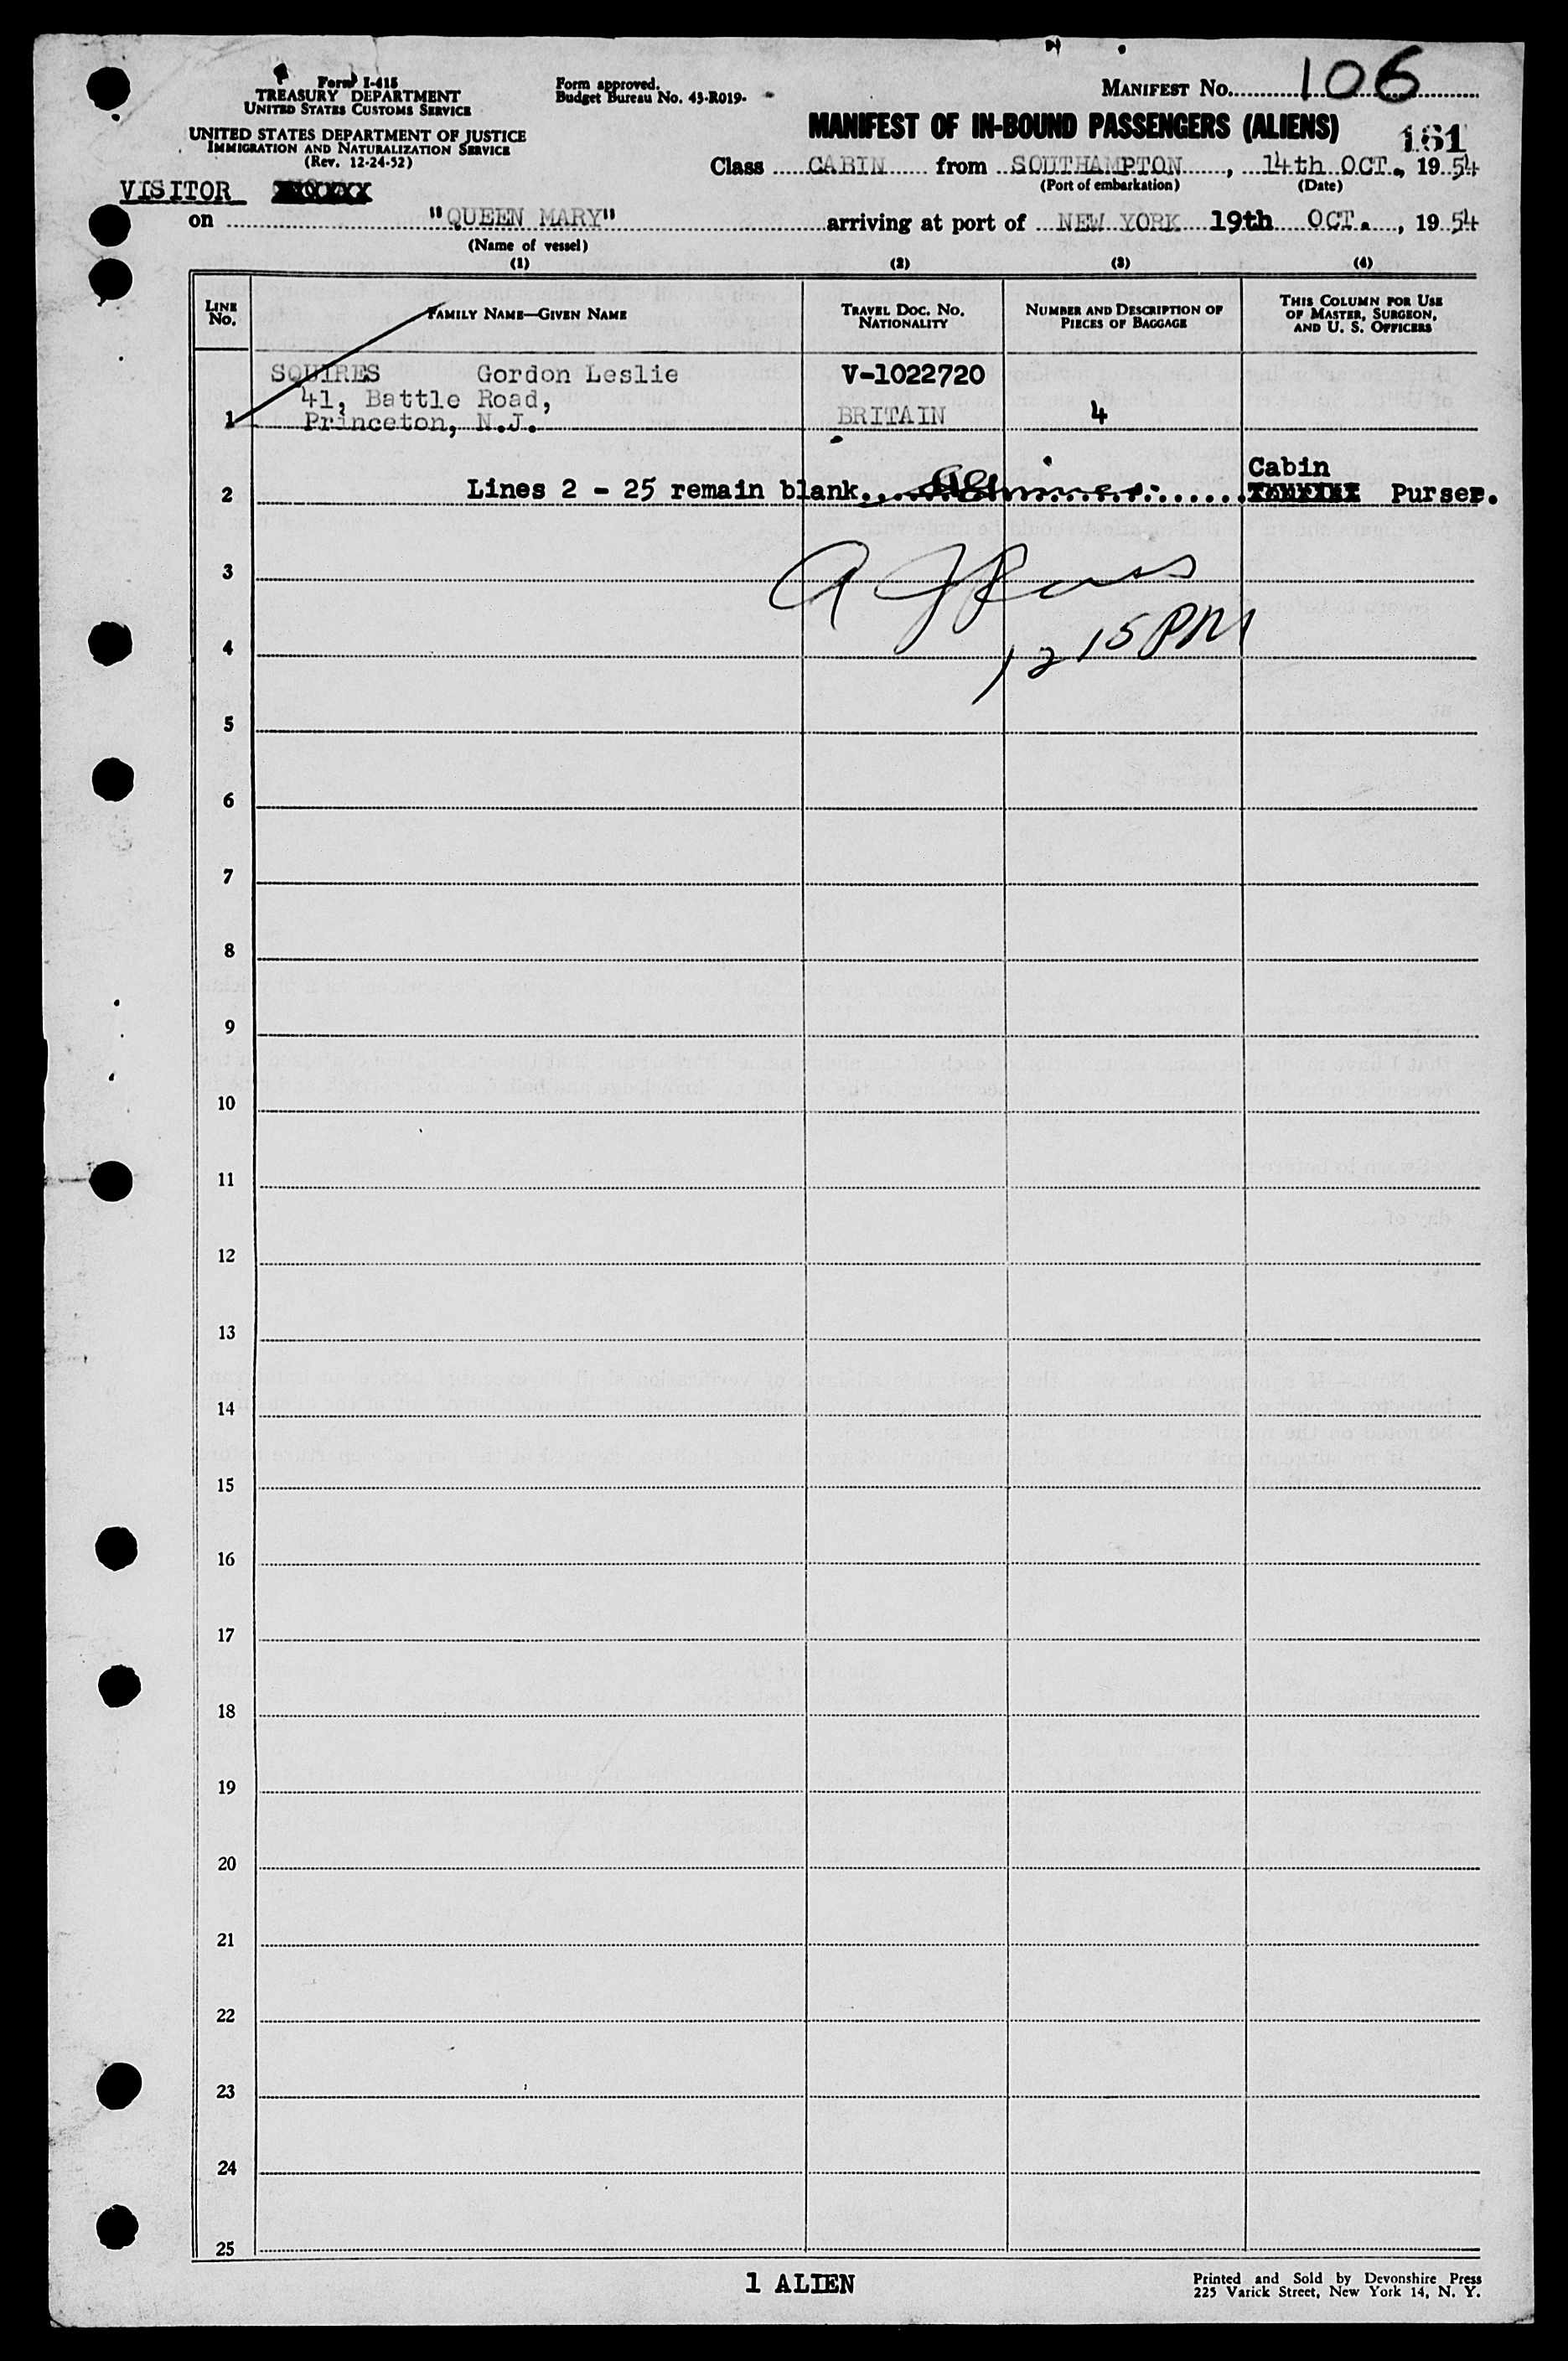 Form I-415
TREASURY DEPARTMENT
UNITED STATES CUSTOMS SERVICE
UNITED STATES DEPARTMENT OF JUSTICE
IMMIGRATION AND NATURALIZATION SERVICE
(Rev. 12-24-52)
Form approved.
Budget Bureau No. 43-R019.
MANIFEST No. 106
MANIFEST OF IN-BOUND PASSENGERS (ALIENS) 161
Class CABIN from SOUTHAMPTON, 14th OCT., 1954
(Port of embarkation) (Date)
VISITOR
on "QUEEN MARY" arriving at port of NEW YORK 19th OCT., 1954
(Name of vessel)
(1) (2) (3) (4)
LINE No. FAMILY NAME—GIVEN NAME TRAVEL DOC. No. NATIONALITY NUMBER AND DESCRIPTION OF PIECES OF BAGGAGE THIS COLUMN FOR USE OF MASTER, SURGEON, AND U. S. OFFICERS
SQUIRES Gordon Leslie V-1022720
41, Battle Road,
1 Princeton, N.J. BRITAIN 4
Cabin
2 Lines 2 - 25 remain blank. Purser.
3 A J Ross
4 12 15 PM
5
6
7
8
9
10
11
12
13
14
15
16
17
18
19
20
21
22
23
24
25
1 ALIEN
Printed and Sold by Devonshire Press
225 Varick Street, New York 14, N. Y.